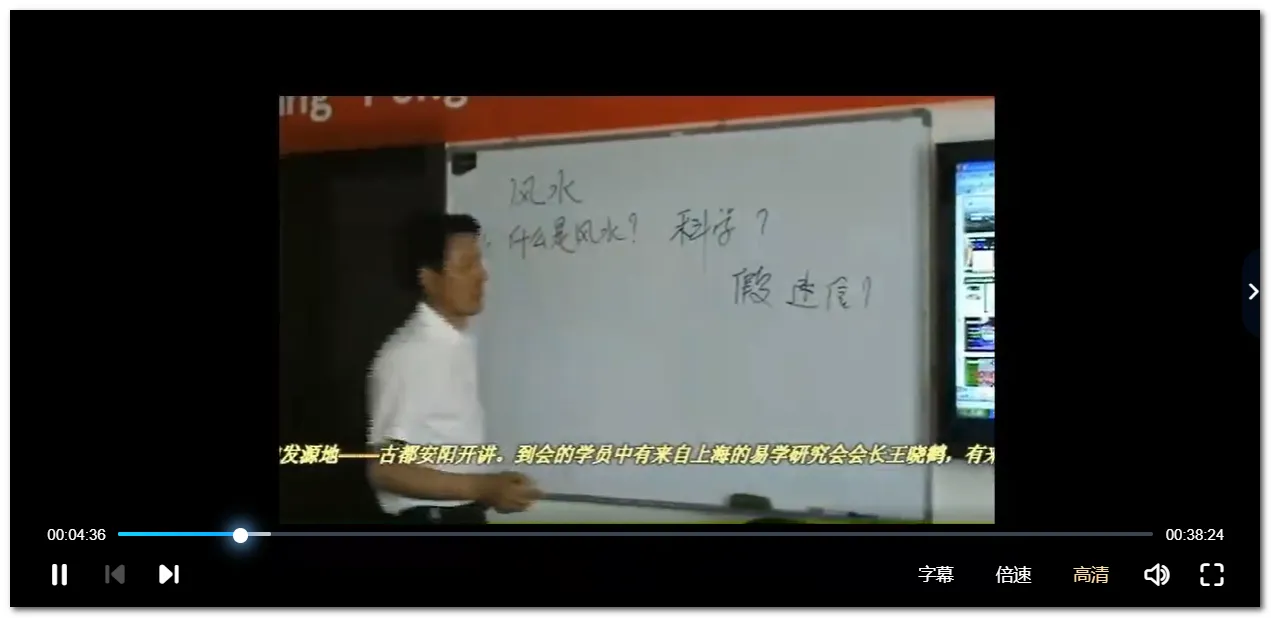 ing Pong
风水
什么是风水? 科学?
假 迷信?
发源地——古都安阳开讲。到会的学员中有来自上海的易学研究会会长王晓鹤，有来
00:04:36
00:38:24
字幕 倍速 高清